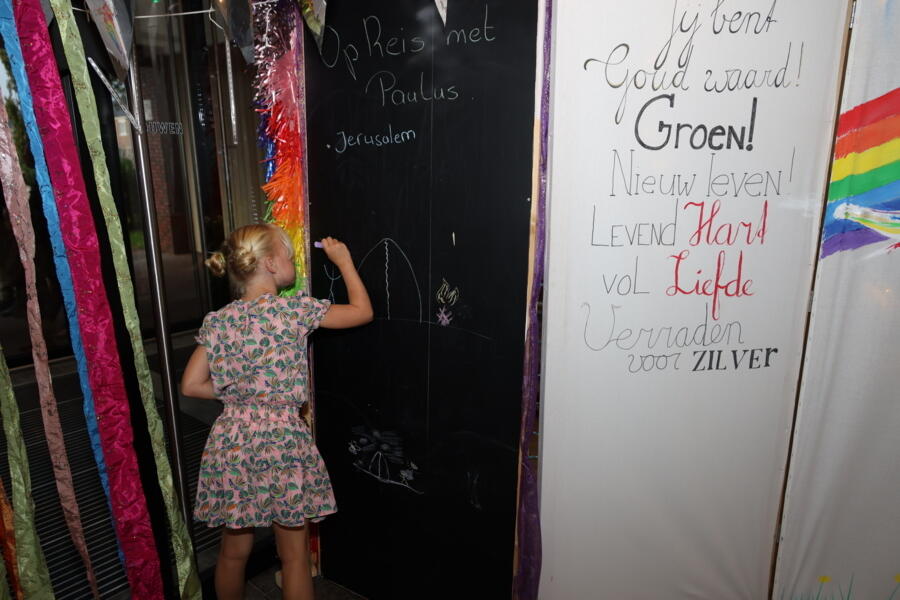 Op Reis met
Paulus.
. Jerusalem
Jij bent
Goud waard!
Groen!
Nieuw leven!
Levend Hart
vol Liefde
Verraden
voor ZILVER